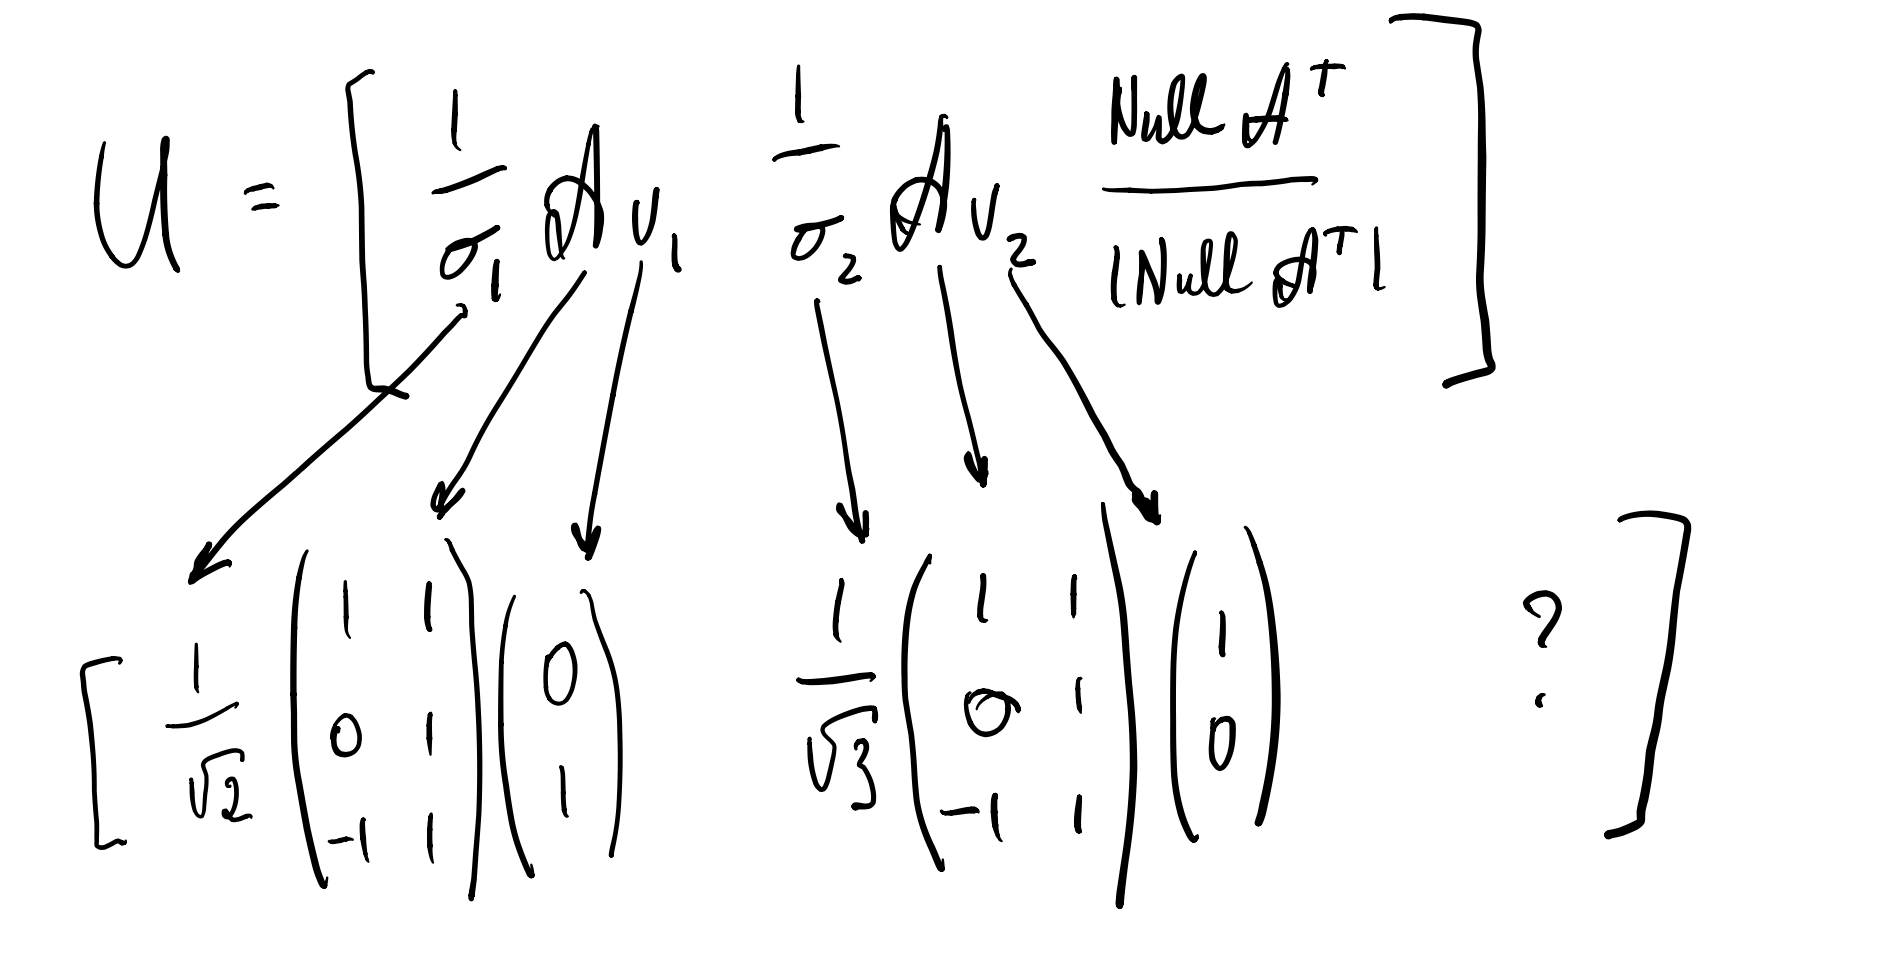 U = [ 1/σ₁ A v₁   1/σ₂ A v₂   Null Aᵀ / |Null Aᵀ| ]
[ 1/√2 ( 1 1 ; 0 1 ; -1 1 ) ( 0 ; 1 )   1/√3 ( 1 1 ; 0 1 ; -1 1 ) ( 1 ; 0 )   ? ]